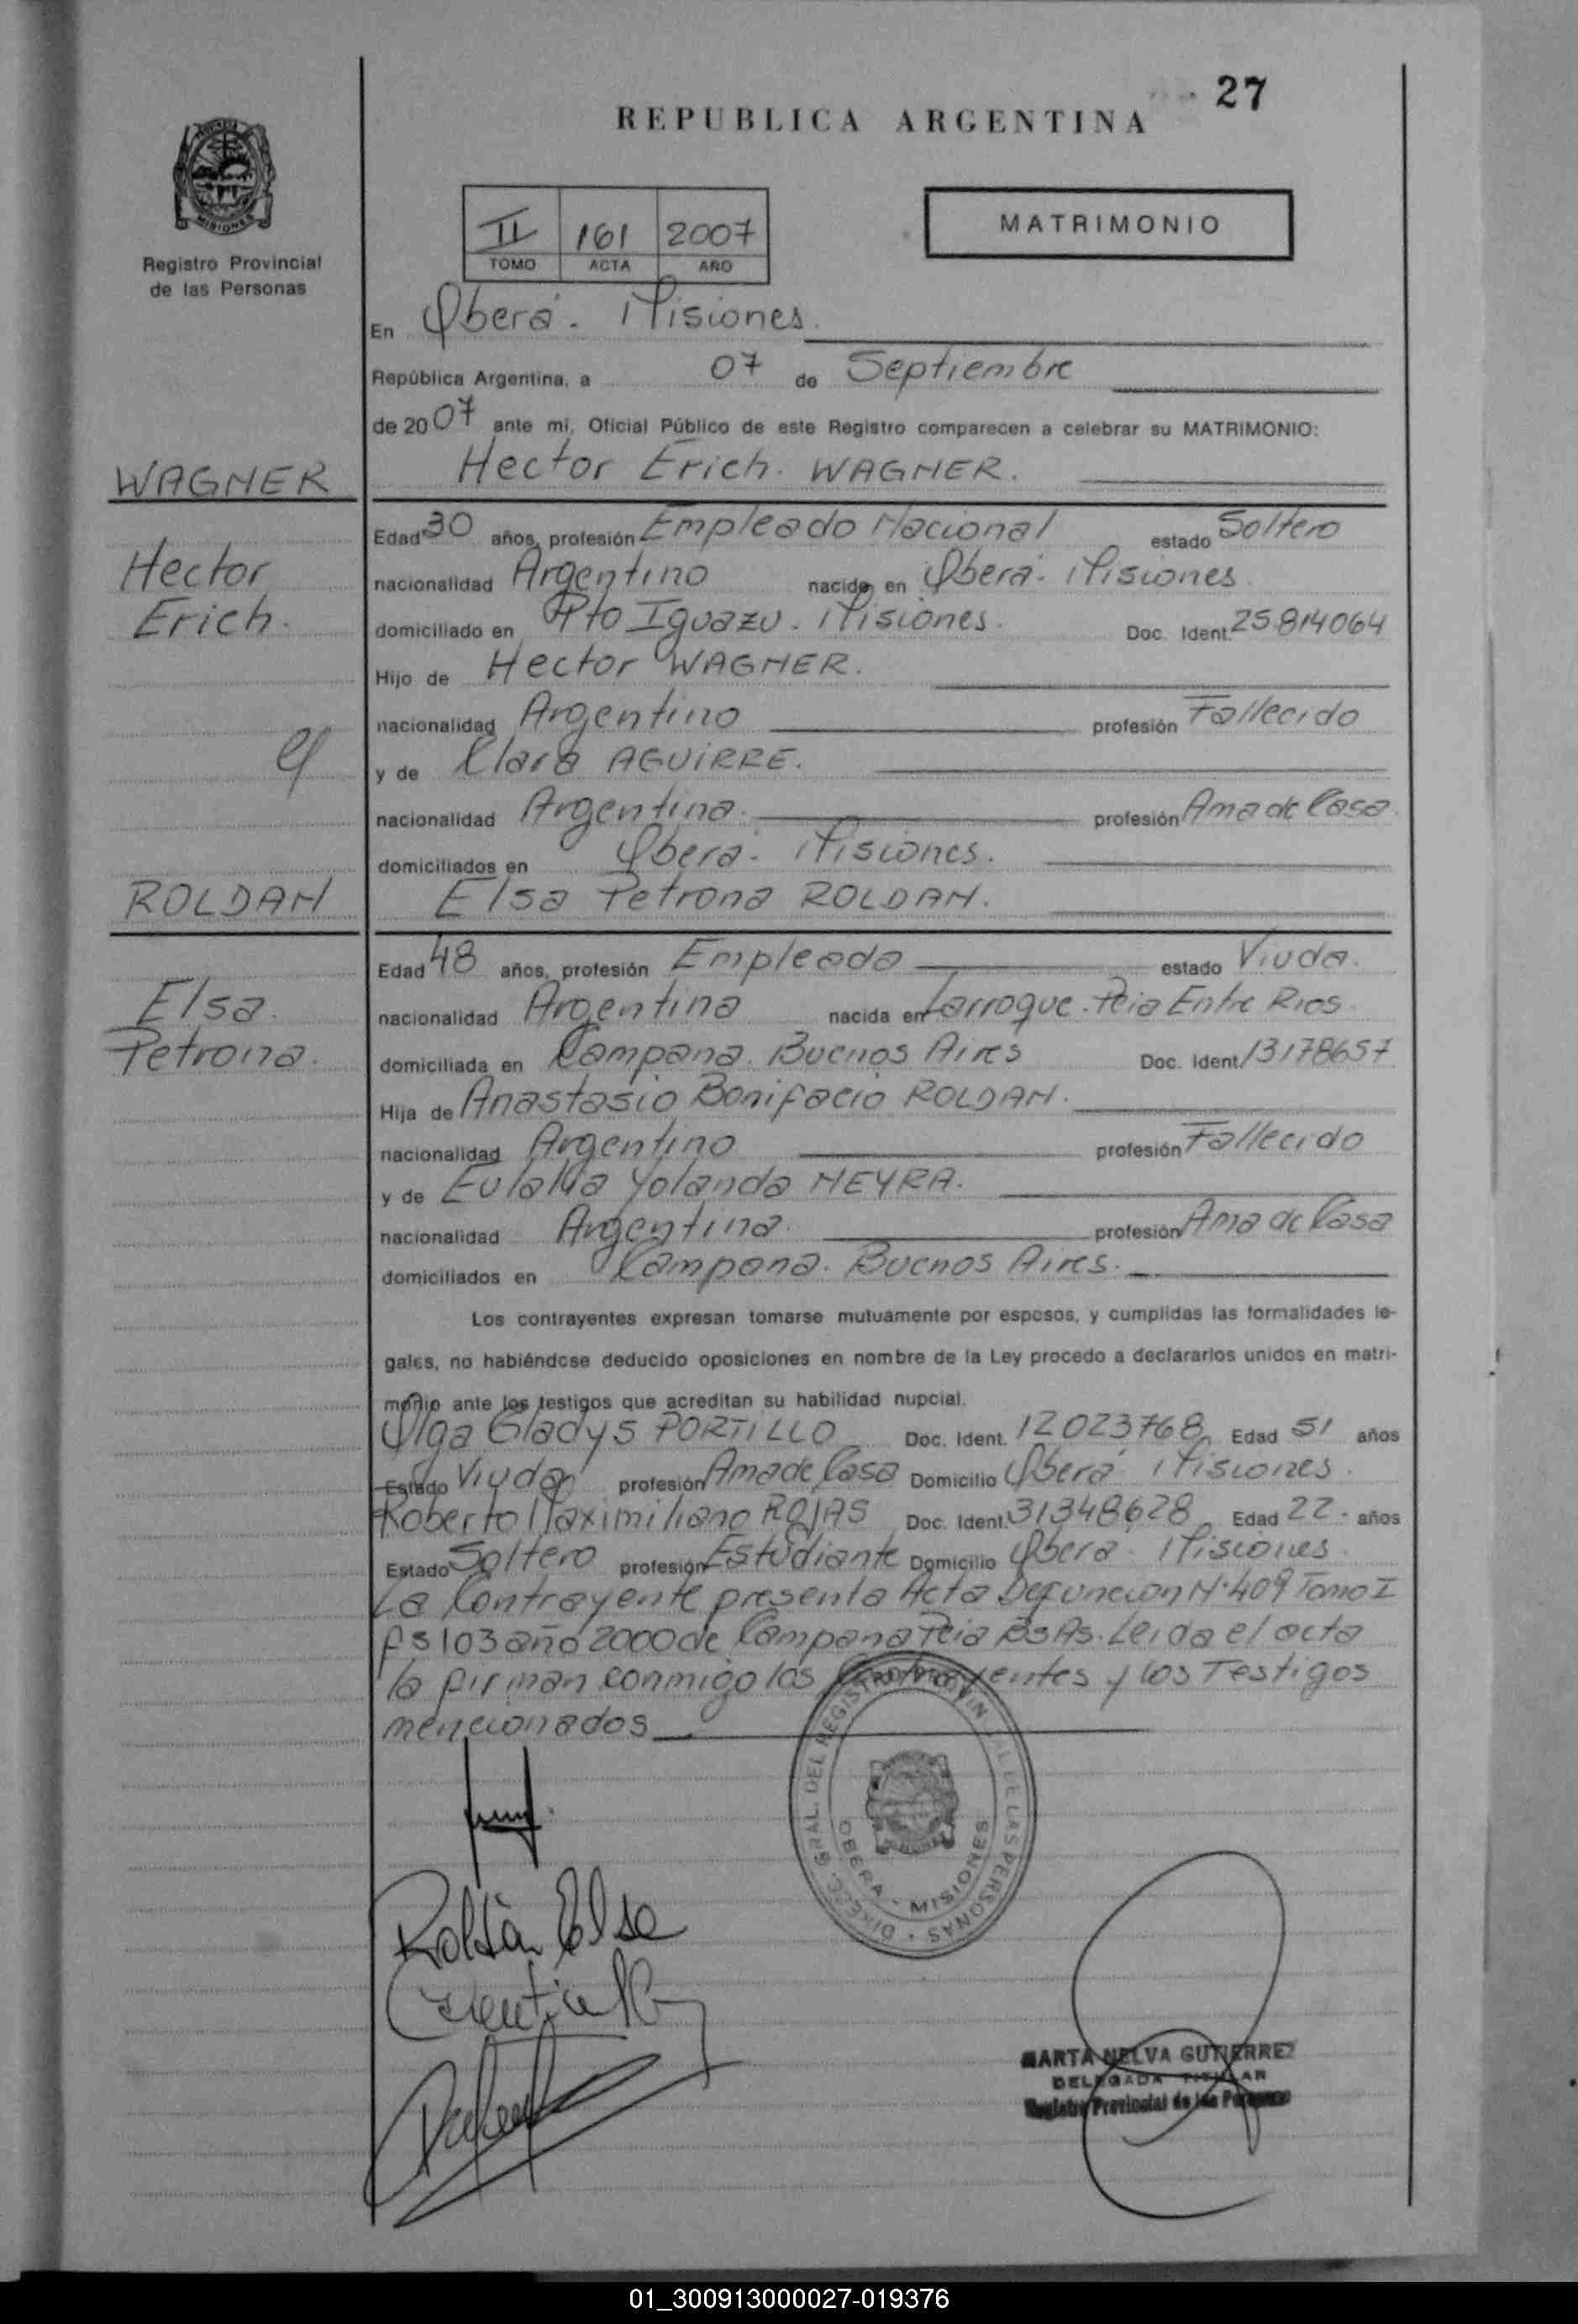 27
REPUBLICA ARGENTINA
MISIONES
Registro Provincial
de las Personas
II 161 2007
TOMO ACTA AÑO
MATRIMONIO
En Oberá - Misiones.
República Argentina, a 07 de Septiembre
de 2007 ante mí, Oficial Público de este Registro comparecen a celebrar su MATRIMONIO:
WAGNER
Hector Erich. WAGNER.
Hector
Erich.
Edad 30 años, profesión Empleado Nacional estado Soltero
nacionalidad Argentino nacido en Oberá - Misiones
domiciliado en Pto Iguazu. Misiones. Doc. Ident. 25.814064
Hijo de Hector WAGNER.
nacionalidad Argentino profesión Fallecido
y
y de Clara AGUIRRE.
nacionalidad Argentina. profesión Ama de Casa.
domiciliados en Oberá - Misiones.
ROLDAN
Elsa Petrona ROLDAN.
Elsa.
Petrona.
Edad 48 años, profesión Empleada estado Viuda.
nacionalidad Argentina nacida en Larroque. Pcia Entre Rios
domiciliada en Campana. Buenos Aires Doc. Ident. 13178657
Hija de Anastasio Bonifacio ROLDAN.
nacionalidad Argentino profesión Fallecido
y de Eulalia Yolanda NEYRA.
nacionalidad Argentina. profesión Ama de Casa
domiciliados en Campana. Buenos Aires.
Los contrayentes expresan tomarse mutuamente por esposos, y cumplidas las formalidades le-
gales, no habiéndose deducido oposiciones en nombre de la Ley procedo a declararlos unidos en matri-
monio ante los testigos que acreditan su habilidad nupcial.
Olga Gladys PORTILLO Doc. Ident. 12023768 Edad 51 años
Estado Viuda profesión Ama de Casa Domicilio Oberá Misiones.
Roberto Maximiliano ROJAS Doc. Ident. 31348628 Edad 22 - años
Estado Soltero profesión Estudiante Domicilio Oberá - Misiones.
La Contrayente presenta Acta Defuncion Nº 409 Tomo I
Fs 103 año 2000 de Campana Pcia Bs As. Leida el acta
la firman conmigo los Contrayentes y los Testigos
mencionados
DIRECC. GRAL. DEL REGISTRO PROVINCIAL DE LAS PERSONAS
OBERA - MISIONES
Roldán Elsa
MARTA NELVA GUTIERREZ
DELEGADA TITULAR
Registro Provincial de las Personas
01_300913000027-019376